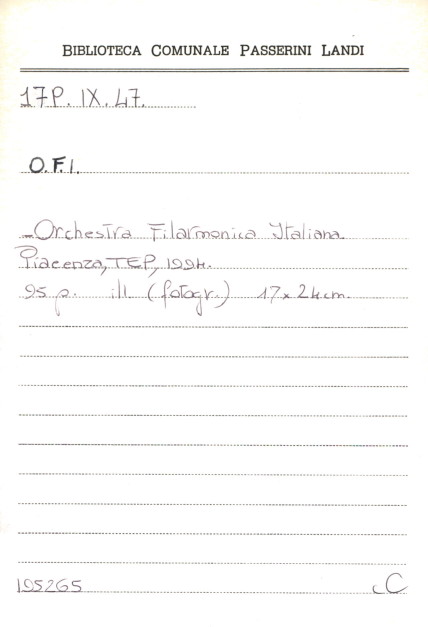 BIBLIOTECA COMUNALE PASSERINI LANDI
17P. IX. 47.
O.F.I.
-Orchestra Filarmonica Italiana.
Piacenza, TEP, 1994.
95 p. ill. (fotogr.) 17x24cm.
195265 C